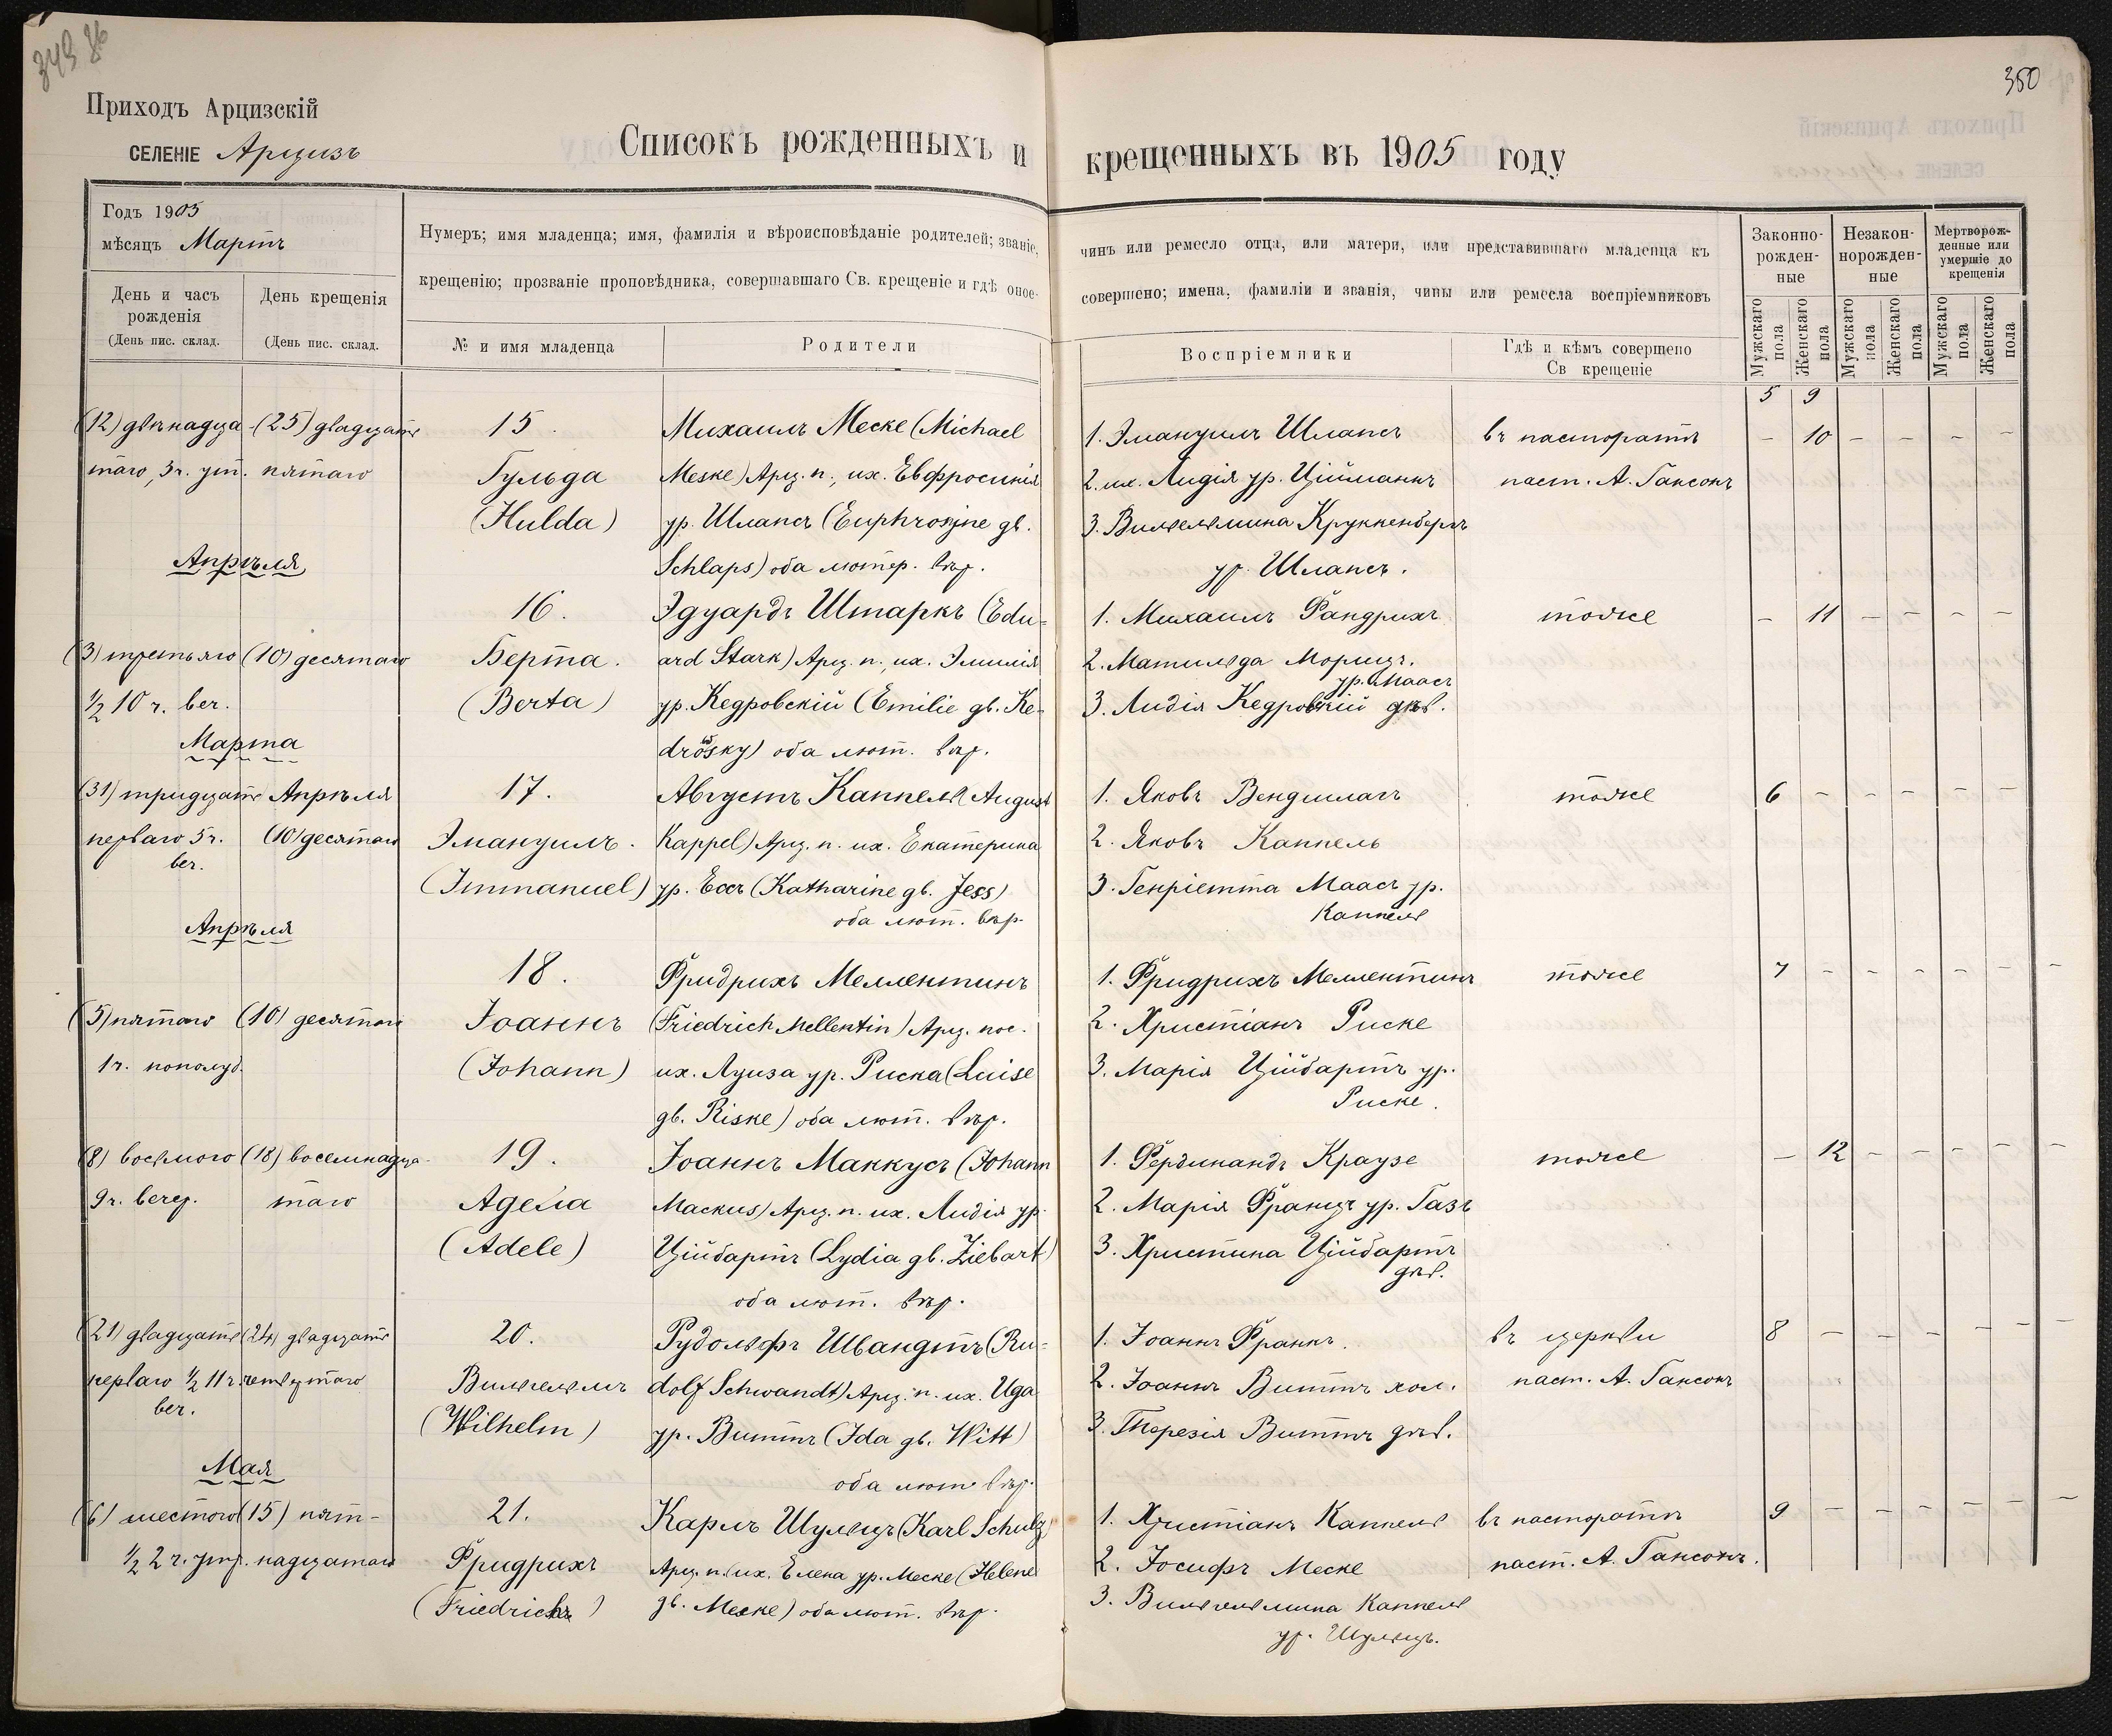 349 86
350
Приходъ Арцизскій
СЕЛЕНІЕ Арцизъ
Списокъ рожденныхъ и крещенныхъ въ 1905 году
Годъ 1905
мѣсяцъ Мартъ
День и часъ рожденія
(День пис. склад.
День крещенія
(День пис. склад.
Нумеръ; имя младенца; имя, фамилія и вѣроисповѣданіе родителей; званіе, чинъ или ремесло отца, или матери, или представившаго младенца къ
крещенію; прозваніе проповѣдника, совершавшаго Св. крещеніе и гдѣ оное совершено; имена, фамиліи и званія, чины или ремесла воспріемниковъ
№ и имя младенца
Родители
Воспріемники
Гдѣ и кѣмъ совершено
Св крещеніе
Законно-
рожден-
ные
Незакон-
норожден-
ные
Мертворож-
денные или
умершіе до
крещенія
Мужскаго пола
Женскаго пола
Мужскаго пола
Женскаго пола
Мужскаго пола
Женскаго пола
5 9
(12) двѣнадца-
таго, 3ч. ут.
(25) двадцать
пятаго
15.
Гульда
(Hulda)
Михаилъ Меске (Michael
Meske) Арц. п., их. Евфросинія
ур. Шлапсъ (Euphrosyne gb.
Schlaps) оба лютер. вѣр.
1. Эмануилъ Шлапсъ
2. их. Лидія ур. Ційманнъ
3. Вильгельмина Круккенбергъ
ур. Шлапсъ.
въ пасторатѣ
паст. А. Гансонъ
– 10 – – – –
Апрѣля
(3) третьяго
½ 10 ч. веч.
(10) десятаго
16.
Берта.
(Berta)
Эдуардъ Штаркъ (Edu-
ard Stark) Арц. п., их. Эмилія
ур. Кедровскій (Emilie gb. Ke-
drowsky) оба лют. вѣр.
1. Михаилъ Фандрихъ
2. Матильда Морицъ.
ур. Маасъ
3. Лидія Кедровскій дѣв.
тоже
– 11 – – – –
Марта
(31) тридцать
перваго 5ч.
веч.
Апрѣля
(10) десятаго
17.
Эмануилъ.
(Immanuel)
Августъ Каппель (August
Kappel) Арц. п. их. Екатерина
ур. Ессъ (Katharine gb. Jess)
оба лют. вѣр.
1. Яковъ Вендлтлагъ
2. Яковъ Каппель
3. Генріетта Маасъ ур.
Каппель
тоже
6 – – – – –
Апрѣля
(5) пятаго
1ч. пополуд.
(10) десятаго
18.
Іоаннъ
(Johann)
Фридрихъ Меллентинъ
(Friedrich Mellentin) Арц. пос.
их. Луиза ур. Риска (Luise
gb. Riske) оба лют. вѣр.
1. Фридрихъ Меллентинъ
2. Христіанъ Риске
3. Марія Ційбартъ ур.
Риске.
тоже
7 – – – – –
(8) восьмого
9ч. вечер.
(18) восемнадца-
таго
19.
Адела
(Adele)
Іоаннъ Маккусъ (Johann
Mackus) Арц. п. их. Лидія ур.
Ційбартъ (Lydia gb. Ziebart)
оба лют. вѣр.
1. Фердинандъ Краузе
2. Марія Францъ ур. Газъ
3. Христина Ційбартъ
дѣв.
тоже
– 12 – – – –
(21) двадцать
перваго ½ 11 ч.
веч.
(24) двадцать
четвертаго
20.
Вильгельмъ
(Wilhelm)
Рудольфъ Швандтъ (Ru-
dolf Schwandt) Арц. п. их. Ида
ур. Виттъ (Ida gb. Witt)
оба лют вѣр.
1. Іоаннъ Франкъ.
2. Іоаннъ Виттъ хол.
3. Терезія Виттъ дѣв.
въ церкви
паст. А. Гансонъ
8 – – – – –
Мая
(6) шестого
½ 2 ч. утр.
(15) пят-
надцатаго
21.
Фридрихъ
(Friedrich)
Карлъ Шульцъ (Karl Schulz)
Арц. п. их. Елена ур. Меске (Helene
gb. Meske) оба лют. вѣр.
1. Христіанъ Каппель
2. Іосифъ Меске
3. Вильгельмина Каппель
ур. Шульцъ.
въ пасторатѣ
паст. А. Гансонъ.
9 – – – – –